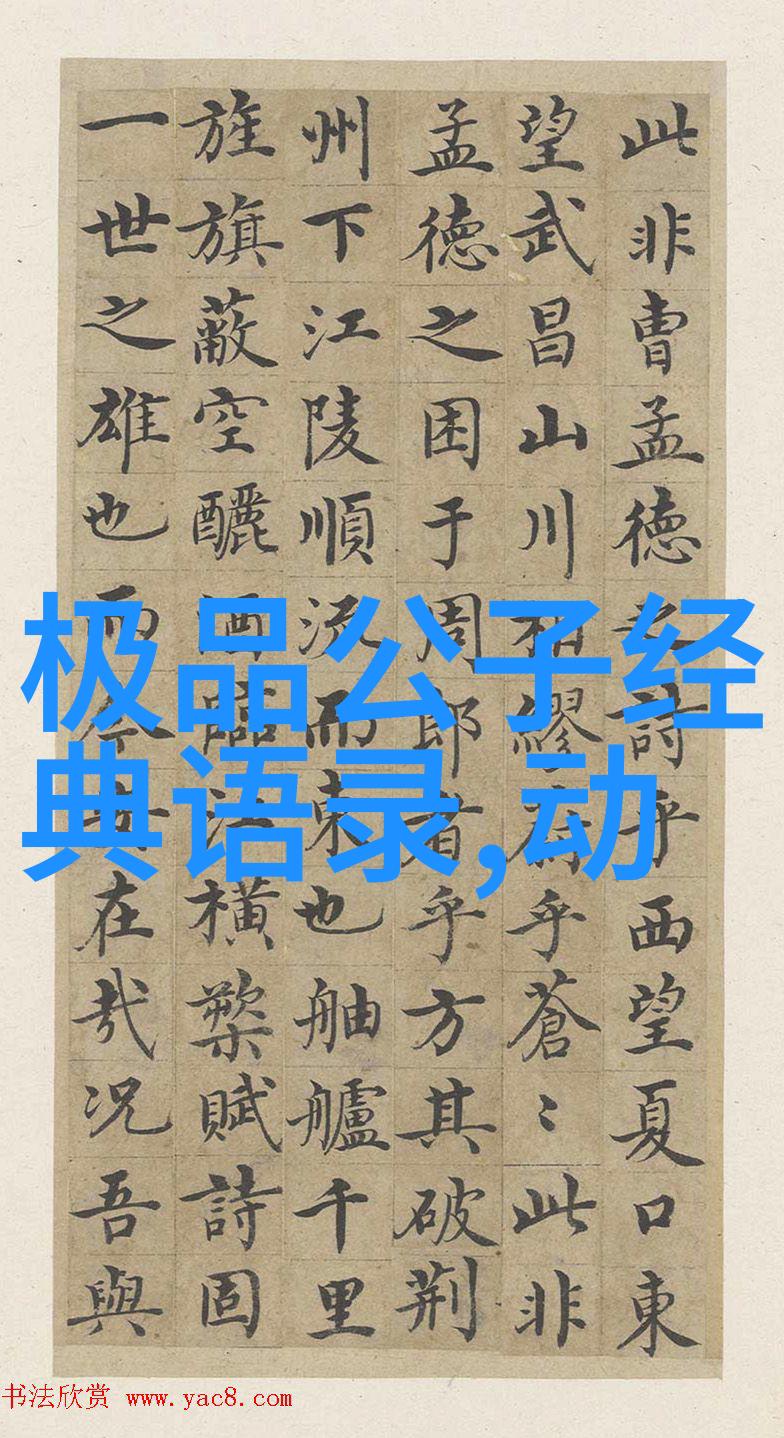 此非曹孟德之詩乎西望夏口東
望武昌山川相繆乎蒼〻此非
孟德之困于周郎者乎方其破荆
州下江陵順流而東也舳艫千里
旌旗蔽空釃酒臨江橫槊賦詩固
一世之雄也而今安在哉况吾與
极品公子经
典语录,动
书法欣赏 www.yac8.com